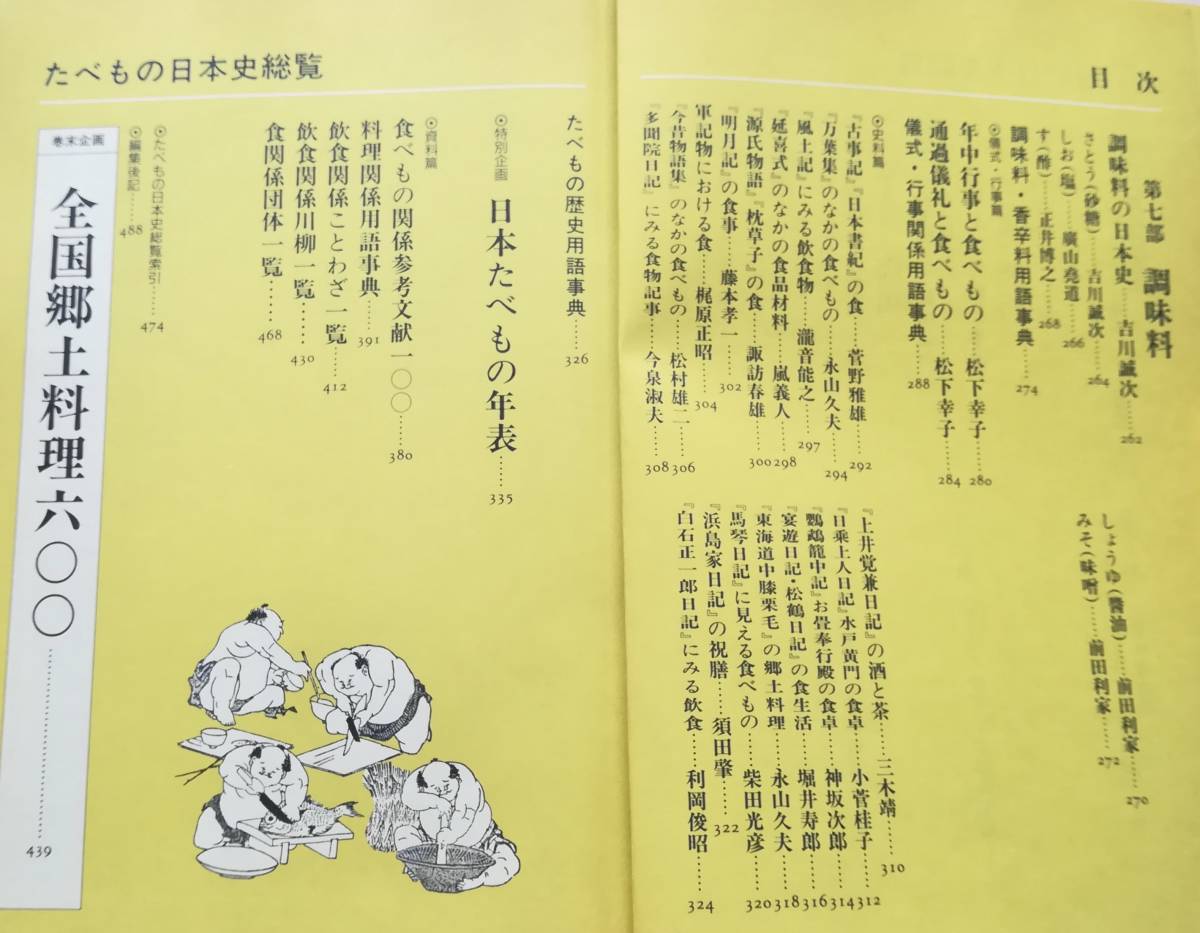 目次
第七部 調味料
調味料の日本史……吉川誠次……262
さとう(砂糖)……吉川誠次……264
しお(塩)……廣山堯道……266
す(酢)……正井博之……268
しょうゆ(醬油)……前田利家……270
みそ(味噌)……前田利家……272
調味料・香辛料用語事典……274
◉儀式・行事篇
年中行事と食べもの……松下幸子……280
通過儀礼と食べもの……松下幸子……284
儀式・行事関係用語事典……288
◉史料篇
『古事記』『日本書紀』の食……菅野雅雄……292
『万葉集』のなかの食べもの……永山久夫……294
『風土記』にみる飲食物……瀧音能之……297
『延喜式』のなかの食品材料……嵐義人……298
『源氏物語』『枕草子』の食……諏訪春雄……300
『明月記』の食事……藤本孝一……302
軍記物における食……梶原正昭……304
『今昔物語集』のなかの食べもの……松村雄二……306
『多聞院日記』にみる食物記事……今泉淑夫……308
『上井覚兼日記』の酒と茶……三木靖……310
『日乗上人日記』水戸黄門の食卓……小菅桂子……312
『鸚鵡籠中記』お畳奉行殿の食卓……神坂次郎……314
『宴遊日記・松鶴日記』の食生活……堀井寿郎……316
『東海道中膝栗毛』の郷土料理……永山久夫……318
『馬琴日記』に見える食べもの……柴田光彦……320
『浜島家日記』の祝膳……須田肇……322
『白石正一郎日記』にみる飲食……利岡俊昭……324
たべもの日本史総覧
たべもの歴史用語事典……326
◉特別企画
日本たべもの年表……335
◉資料篇
食べもの関係参考文献一〇〇……380
料理関係用語事典……391
飲食関係ことわざ一覧……412
飲食関係川柳一覧……430
食関係団体一覧……468
◉たべもの日本史総覧索引……474
◉編集後記……488
巻末企画
全国郷土料理六〇〇……439